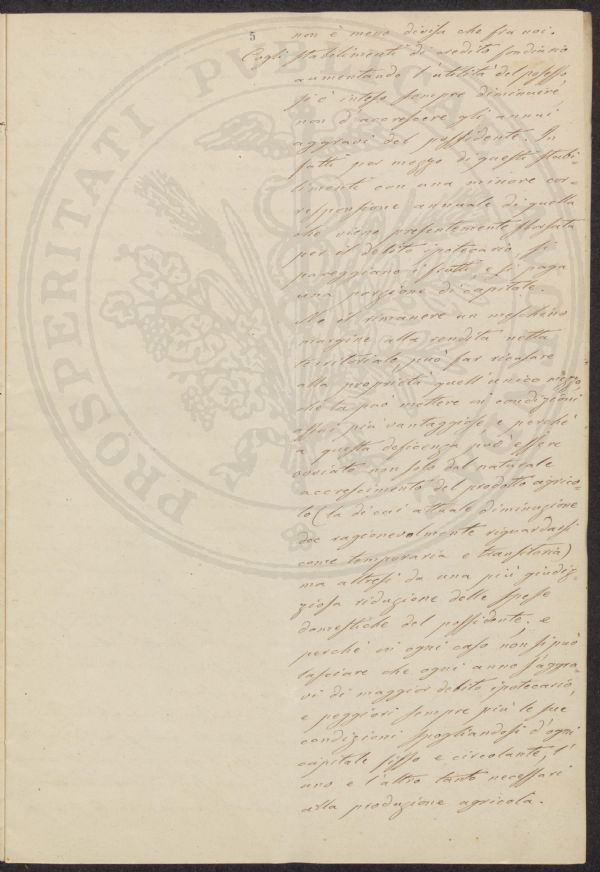 5
non è meno divisa che fra noi.
Cogli stabilimenti di credito fondiario
aumentando l'utilità del possesso
si è inteso sempre diminuire,
non d'accrescere gli annui
aggravi del possidente. In-
fatti per mezzo di questi stabi-
limenti con una minore cor-
responsione annuale di quella
che viene presentemente sborsata
per il debito ipotecario si
pareggiano i frutti, e si paga
una porzione di capitale.
Ne il rimanere un meschino
margine alla rendita netta
territoriale, può far ricusare
alla proprietà quell'unico mezzo
che la può mettere in condizioni
assai più vantaggiose, e perchè
a questa deficenza può essere
ovviato non solo dal naturale
accrescimento del prodotto agrico-
lo (la di cui attuale diminuzione
dee ragionevolmente riguardarsi
come temporaria e transitoria)
ma altresì da una più giudiz-
ziosa riduzione delle spese
domestiche del possidente. e
perchè in ogni caso non si può
lasciare che ogni anno s'aggra-
vi di maggior debito ipotecario,
e peggiori sempre più le sue
condizioni spogliandosi d'ogni
capitale fisso e circolante, l'
uno e l'altro tanto necessari
alla produzione agricola.
PROSPERITATI PUBLICAE